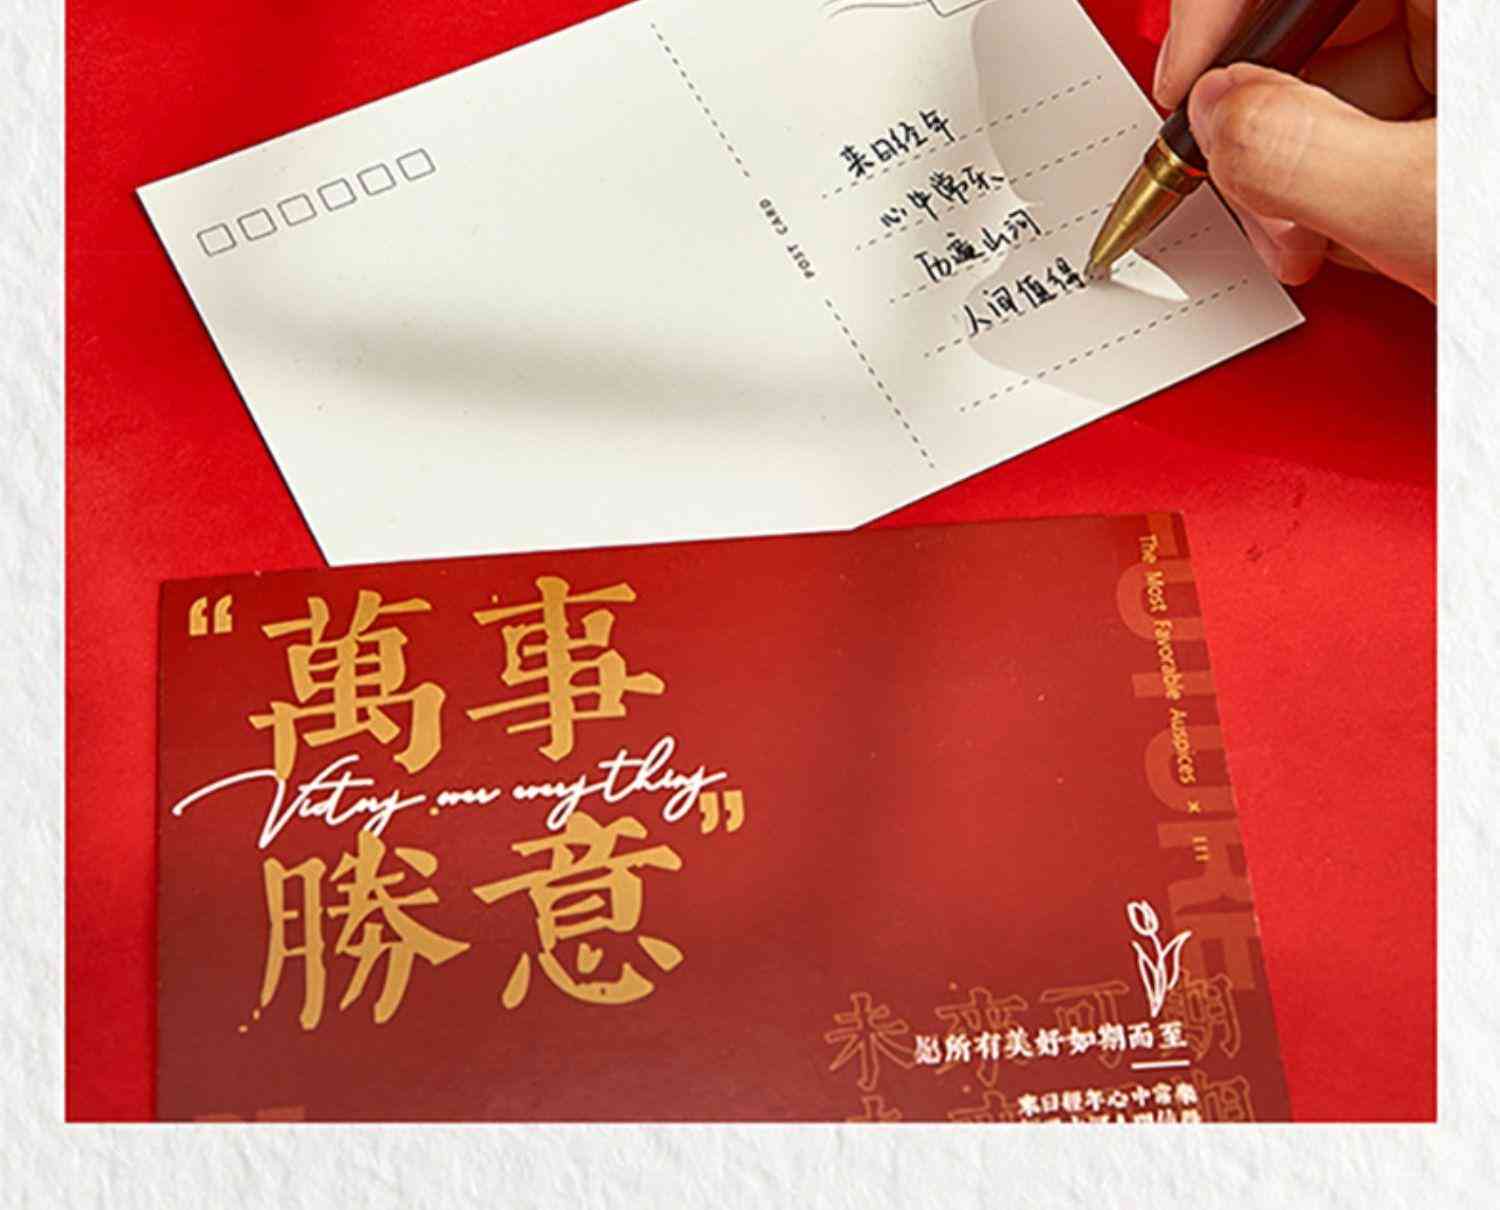 来日经年
心中常乐
历遍山河
人间值得
POST CARD
“萬事
Victory over everything”
勝意
The Most Favorable Auspices x
FUTURE
未来可期
愿所有美好如期而至
来日經年心中常樂